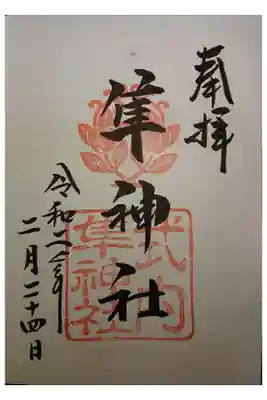 奉拝
隼神社
式内
隼神社
令和二年
二月二十四日